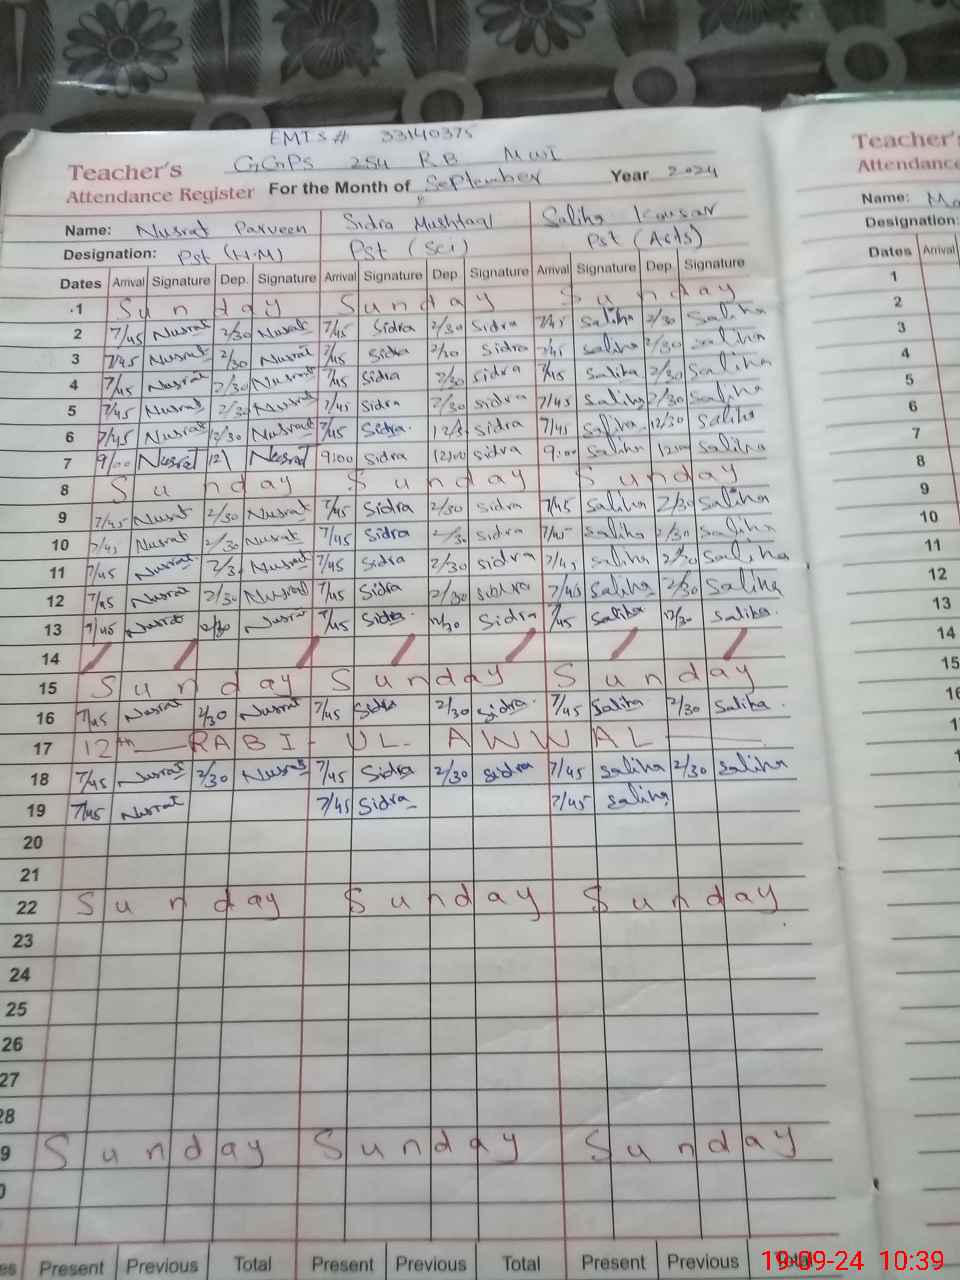 EMIS# 33140375
Teacher's GGPS 254 RB MWI
Attendance Register For the Month of September Year 2024
Name: Nusrat Parveen Sidra Mushtaq Saliha Kousar
Designation: Pst (H.M) Pst (Sci) Pst (Arts)
Dates Arrival Signature Dep. Signature Arrival Signature Dep. Signature Arrival Signature Dep. Signature
1 Sunday Sunday Sunday
2 7/45 Nusrat 2/30 Nusrat 7/45 Sidra 2/30 Sidra 7/45 Saliha 2/30 Saliha
3 7/45 Nusrat 2/30 Nusrat 7/45 Sidra 2/30 Sidra 7/45 Saliha 2/30 Saliha
4 7/45 Nusrat 2/30 Nusrat 7/45 Sidra 2/30 Sidra 7/45 Saliha 2/30 Saliha
5 7/45 Nusrat 2/30 Nusrat 7/45 Sidra 2/30 Sidra 7/45 Saliha 2/30 Saliha
6 7/45 Nusrat 12/30 Nusrat 7/45 Sidra 12/3 Sidra 7/45 Saliha 12/30 Saliha
7 9/00 Nusrat 12 Nusrat 9:00 Sidra 12:00 Sidra 9:00 Saliha 12:00 Saliha
8 Sunday Sunday Sunday
9 7/45 Nusrat 2/30 Nusrat 7/45 Sidra 2/30 Sidra 7/45 Saliha 2/30 Saliha
10 7/45 Nusrat 2/30 Nusrat 7/45 Sidra 2/30 Sidra 7/45 Saliha 2/30 Saliha
11 7/45 Nusrat 2/3 Nusrat 7/45 Sidra 2/30 Sidra 7/45 Saliha 2/30 Saliha
12 7/45 Nusrat 2/30 Nusrat 7/45 Sidra 2/30 Sidra 7/45 Saliha 2/30 Saliha
13 7/45 Nusrat 12/30 Nusrat 7/45 Sidra 12/30 Sidra 7/45 Saliha 12/30 Saliha
14
15 Sunday Sunday Sunday
16 7/45 Nusrat 2/30 Nusrat 7/45 Sidra 2/30 Sidra 7/45 Saliha 2/30 Saliha
17 12th RABI-UL-AWWAL
18 7/45 Nusrat 2/30 Nusrat 7/45 Sidra 2/30 Sidra 7/45 Saliha 2/30 Saliha
19 7/45 Nusrat 7/45 Sidra 7/45 Saliha
20
21
22 Sunday Sunday Sunday
23
24
25
26
27
28
9 Sunday Sunday Sunday
0
es Present Previous Total Present Previous Total Present Previous
Teacher's
Attendance
Name:
Designation:
Dates Arrival
1
2
3
4
5
6
7
8
9
10
11
12
13
14
15
16
19-09-24 10:39